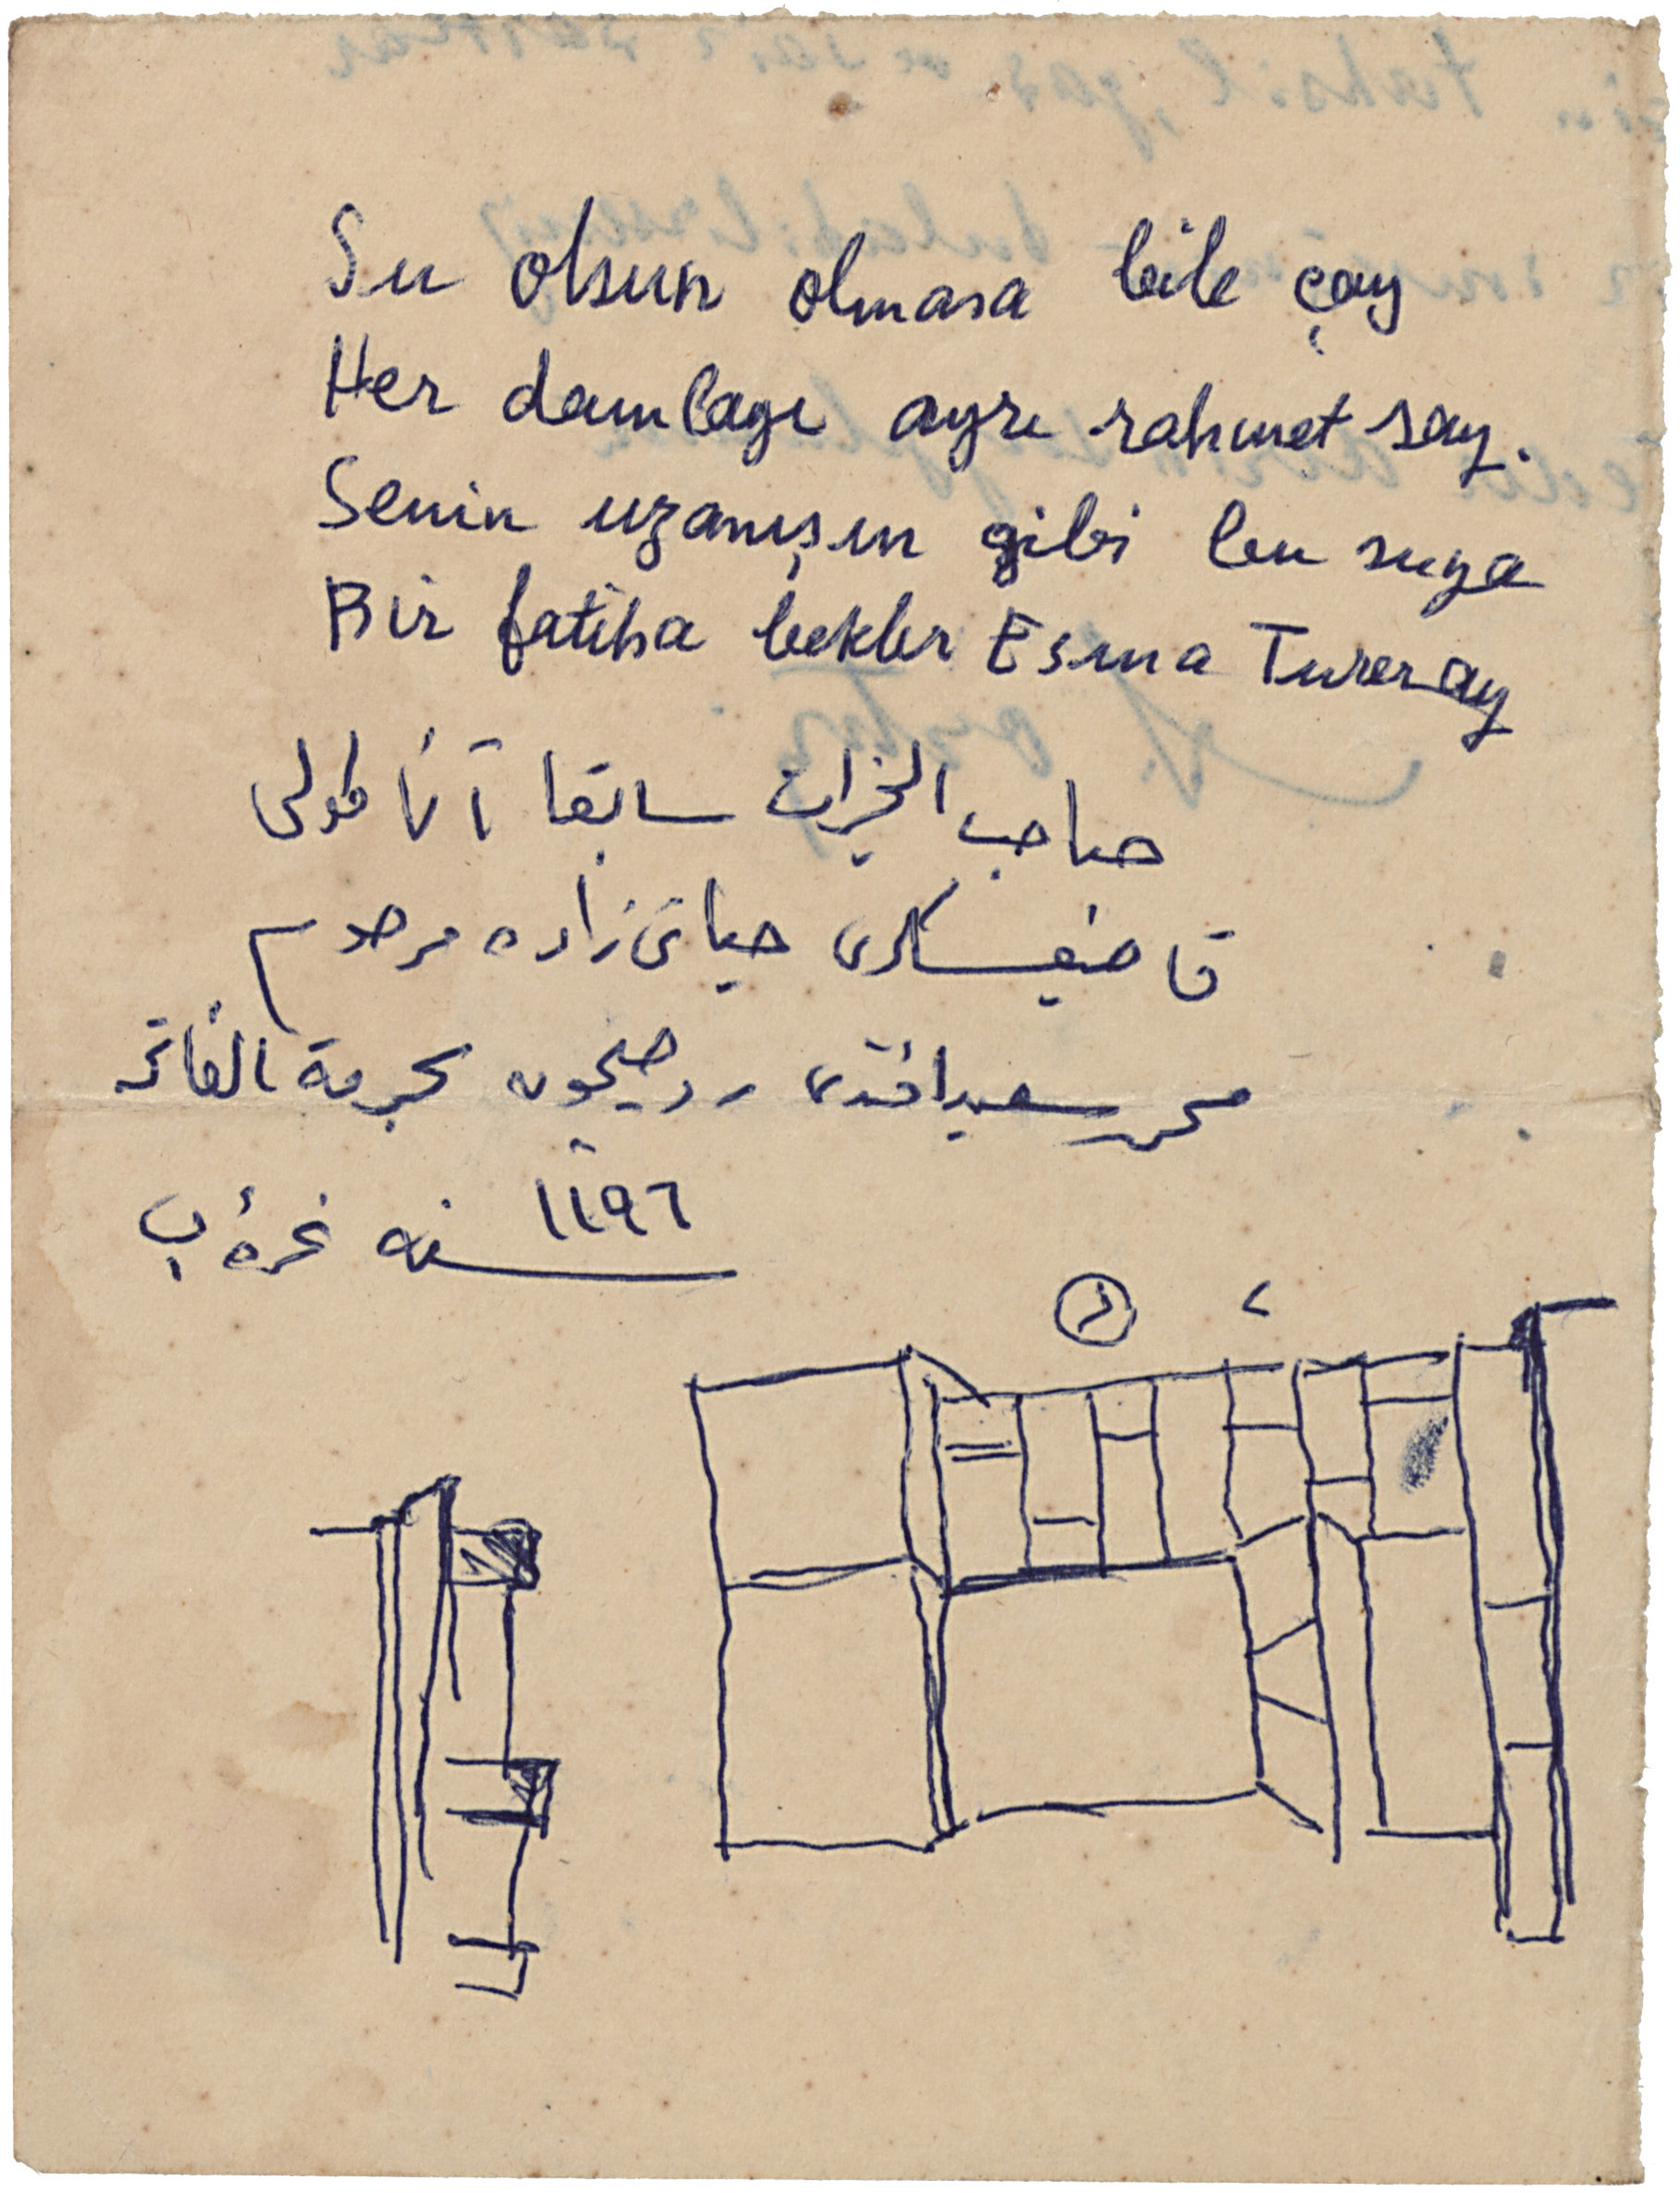 Su olsun olmasa bile çay
Her damlayı ayrı rahmet say.
Senin uzanışın gibi bu suya
Bir fatiha bekler Esma Tureray
صاحب الخيرات سابقا آناطولى
قاضيعسكرى حياتى زاده مرحوم
محمد سعيد افندى روحيچون الفاتحه
سنه ١١٩٦ غرهٔ ب